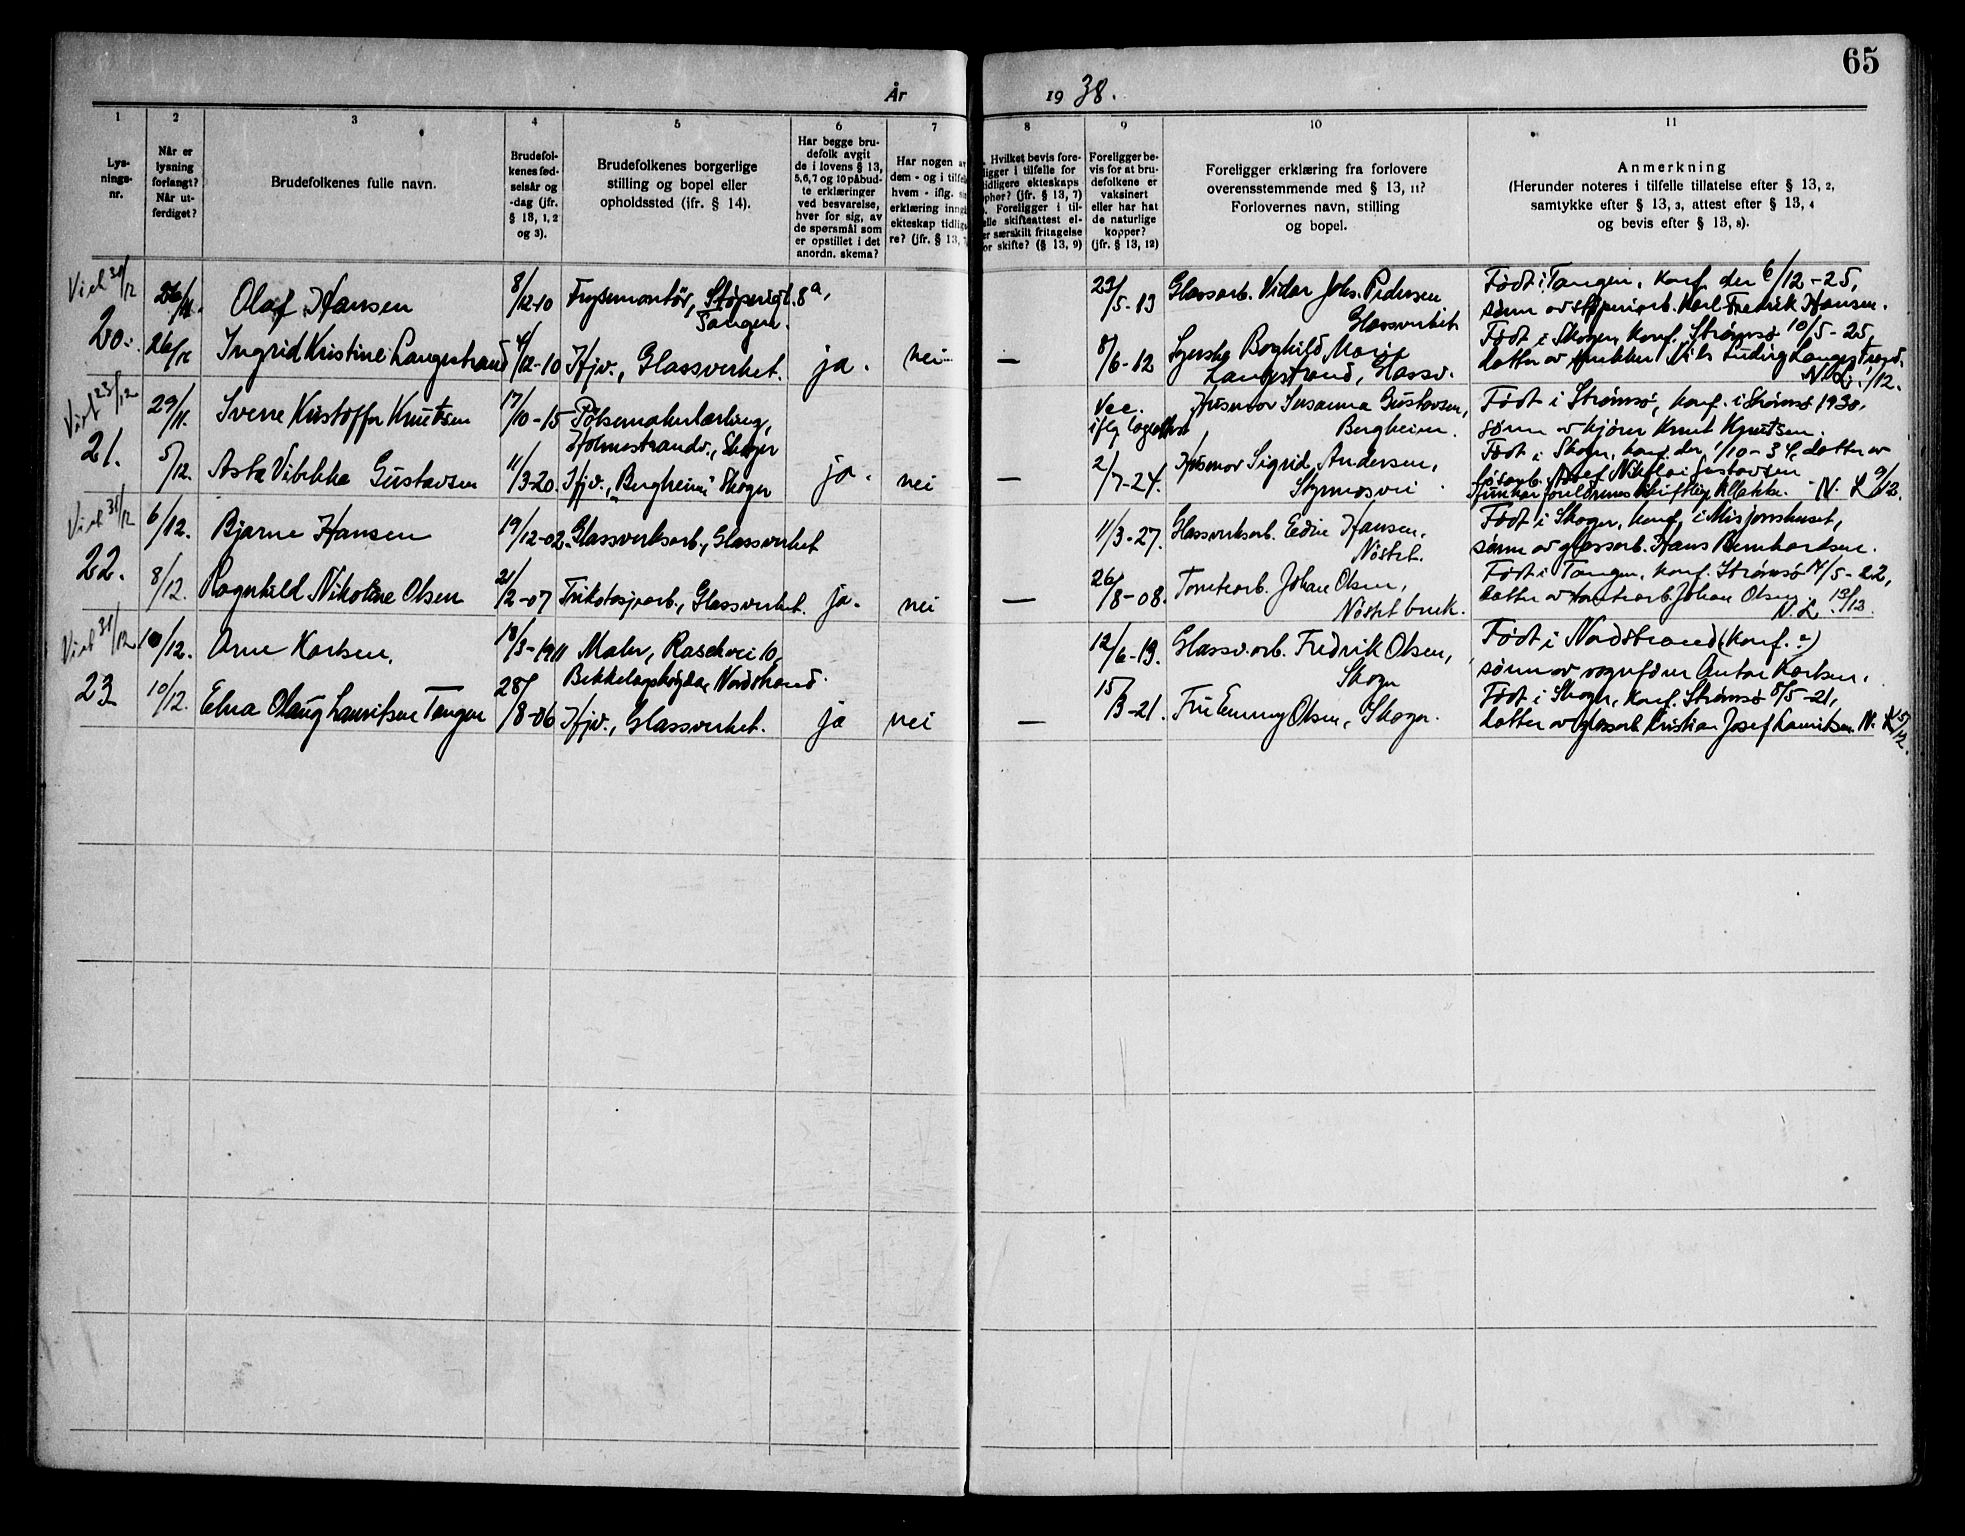 65
År 1938.
1
2
3
4
5
6
7
8
9
10
11
Lys-
nings-
nr.
Når er
lysning
forlangt?
Når ut-
ferdiget?
Brudefolkenes fulle navn.
Brudefol-
kenes fød-
selsår og
-dag (jfr.
§ 13, 1, 2
og 3).
Brudefolkenes borgerlige
stilling og bopel eller
opholdssted (ifr. § 14).
Har begge bru-
defolk avgit
de i lovens § 13,
5,6,7 og 10 påbud-
te erklæringer
ved besvarelse,
hver for sig, av
de spørsmål som
er opstillet i det
anordn. skema?
Har nogen av
dem - og i tilfel
hvem - iflg. sin
erklæring inngå
ekteskap tidlig
re? (jfr. § 13, 7
. Hvilket bevis fore-
ligger i tilfelle for
idligere ekteskaps
ophør? (jfr. § 13, 7)
). Foreligger i til-
elle skifteattest el-
er særskilt fritagelse
or skifte? (§ 13, 9)
Foreligger be-
vis for at bru-
defolkene er
vaksinert
eller har hat
de naturlige
kopper?
(jfr. § 13, 12)
Foreligger erklæring fra forlovere
overensstemmende med § 13, 11?
Forlovernes navn, stilling
og bopel.
Anmerkning
(Herunder noteres i tilfelle tillatelse efter § 13, 2,
samtykke efter § 13, 3, attest efter § 13, 4
og bevis efter § 13, 8).
Viet 30/12
20.
26/11.
Olaf Hansen
8/12-10
Frysemontör, Støperigt. 8a,
Tangen.
23/5-13
Glassarb. Vidar Johs. Pedersen
Glassverket
Født i Tangen, konf. den 6/12-25,
sønn av støperiarb. Karl Fredrik Hansen.
26/11
Ingrid Kristine Langestrand
4/12-10
Hjv., Glassverket.
ja.
nei
—
8/6-12
Syerske Borghild Marie
Langestrand, Glassv.
Født i Skoger, konf. Strømsø 10/5-25,
datter av snekker Nils Ludvig Langestrand.
N. L. 1/12.
Viet 23/12
21.
29/11.
Sverre Kristoffer Knutsen
17/10-15
Pölsemakerlærling,
Holmestrandv., Skoger
Vac.
iflg. legeattest
Husmor Susanna Gustavsen,
Bergheim.
Født i Strømsø, konf. i Strømsø 1930,
sønn av kjører Knut Knutsen.
5/12.
Asta Vibekke Gustavsen
11/3-20.
Hjv., "Bergheim" Skoger
ja.
nei
—
2/7-24.
Husmor Sigrid Andersen,
Styrmosvei
Født i Skoger, konf. den 1/10-34, datter av
løsarb. Josef Nikolai Gustavsen
Hun har foreldrenes skriftlige tillatelse. N. L 9/12.
Viet 31/12
22.
6/12.
Bjarne Hansen
19/12-02.
Glassverksarb., Glassverket
11/3-27.
Glassverksarb. Edin Hansen,
Nöstet.
Født i Skoger, konf. i Misjonshuset,
sønn av glassarb. Hans Bernhardsen.
8/12.
Ragnhild Nikoline Olsen
21/2-07
Trikotasjearb., Glassverket.
ja.
nei
—
26/8-08.
Tomtearb. Johan Olsen,
Nöstet bruk.
Født i Tangen, konf. Strømsø 14/5-22,
datter av tomtearb. Johan Olsen.
N. L. 13/12.
Viet 31/12
23
10/12.
Arne Karlsen.
18/3-1911
Maler, Raschvei 10,
Bekkelagshøgda, Nordstrand.
12/6-13.
Glassv.arb. Fredrik Olsen,
Skoger
Født i Nordstrand (konf. ?)
sønn av vognfører Anton Karlsen.
10/12.
Elna Olaug Lauritsen Tangen
28/8-06
Hjv., Glassverket.
ja
nei
—
15/3-21.
Fru Emmy Olsen, Skoger.
Født i Skoger, konf. Strømsø 8/5-21,
datter av glassarb. Kristian Josef Lauritsen. N. L 15/12.